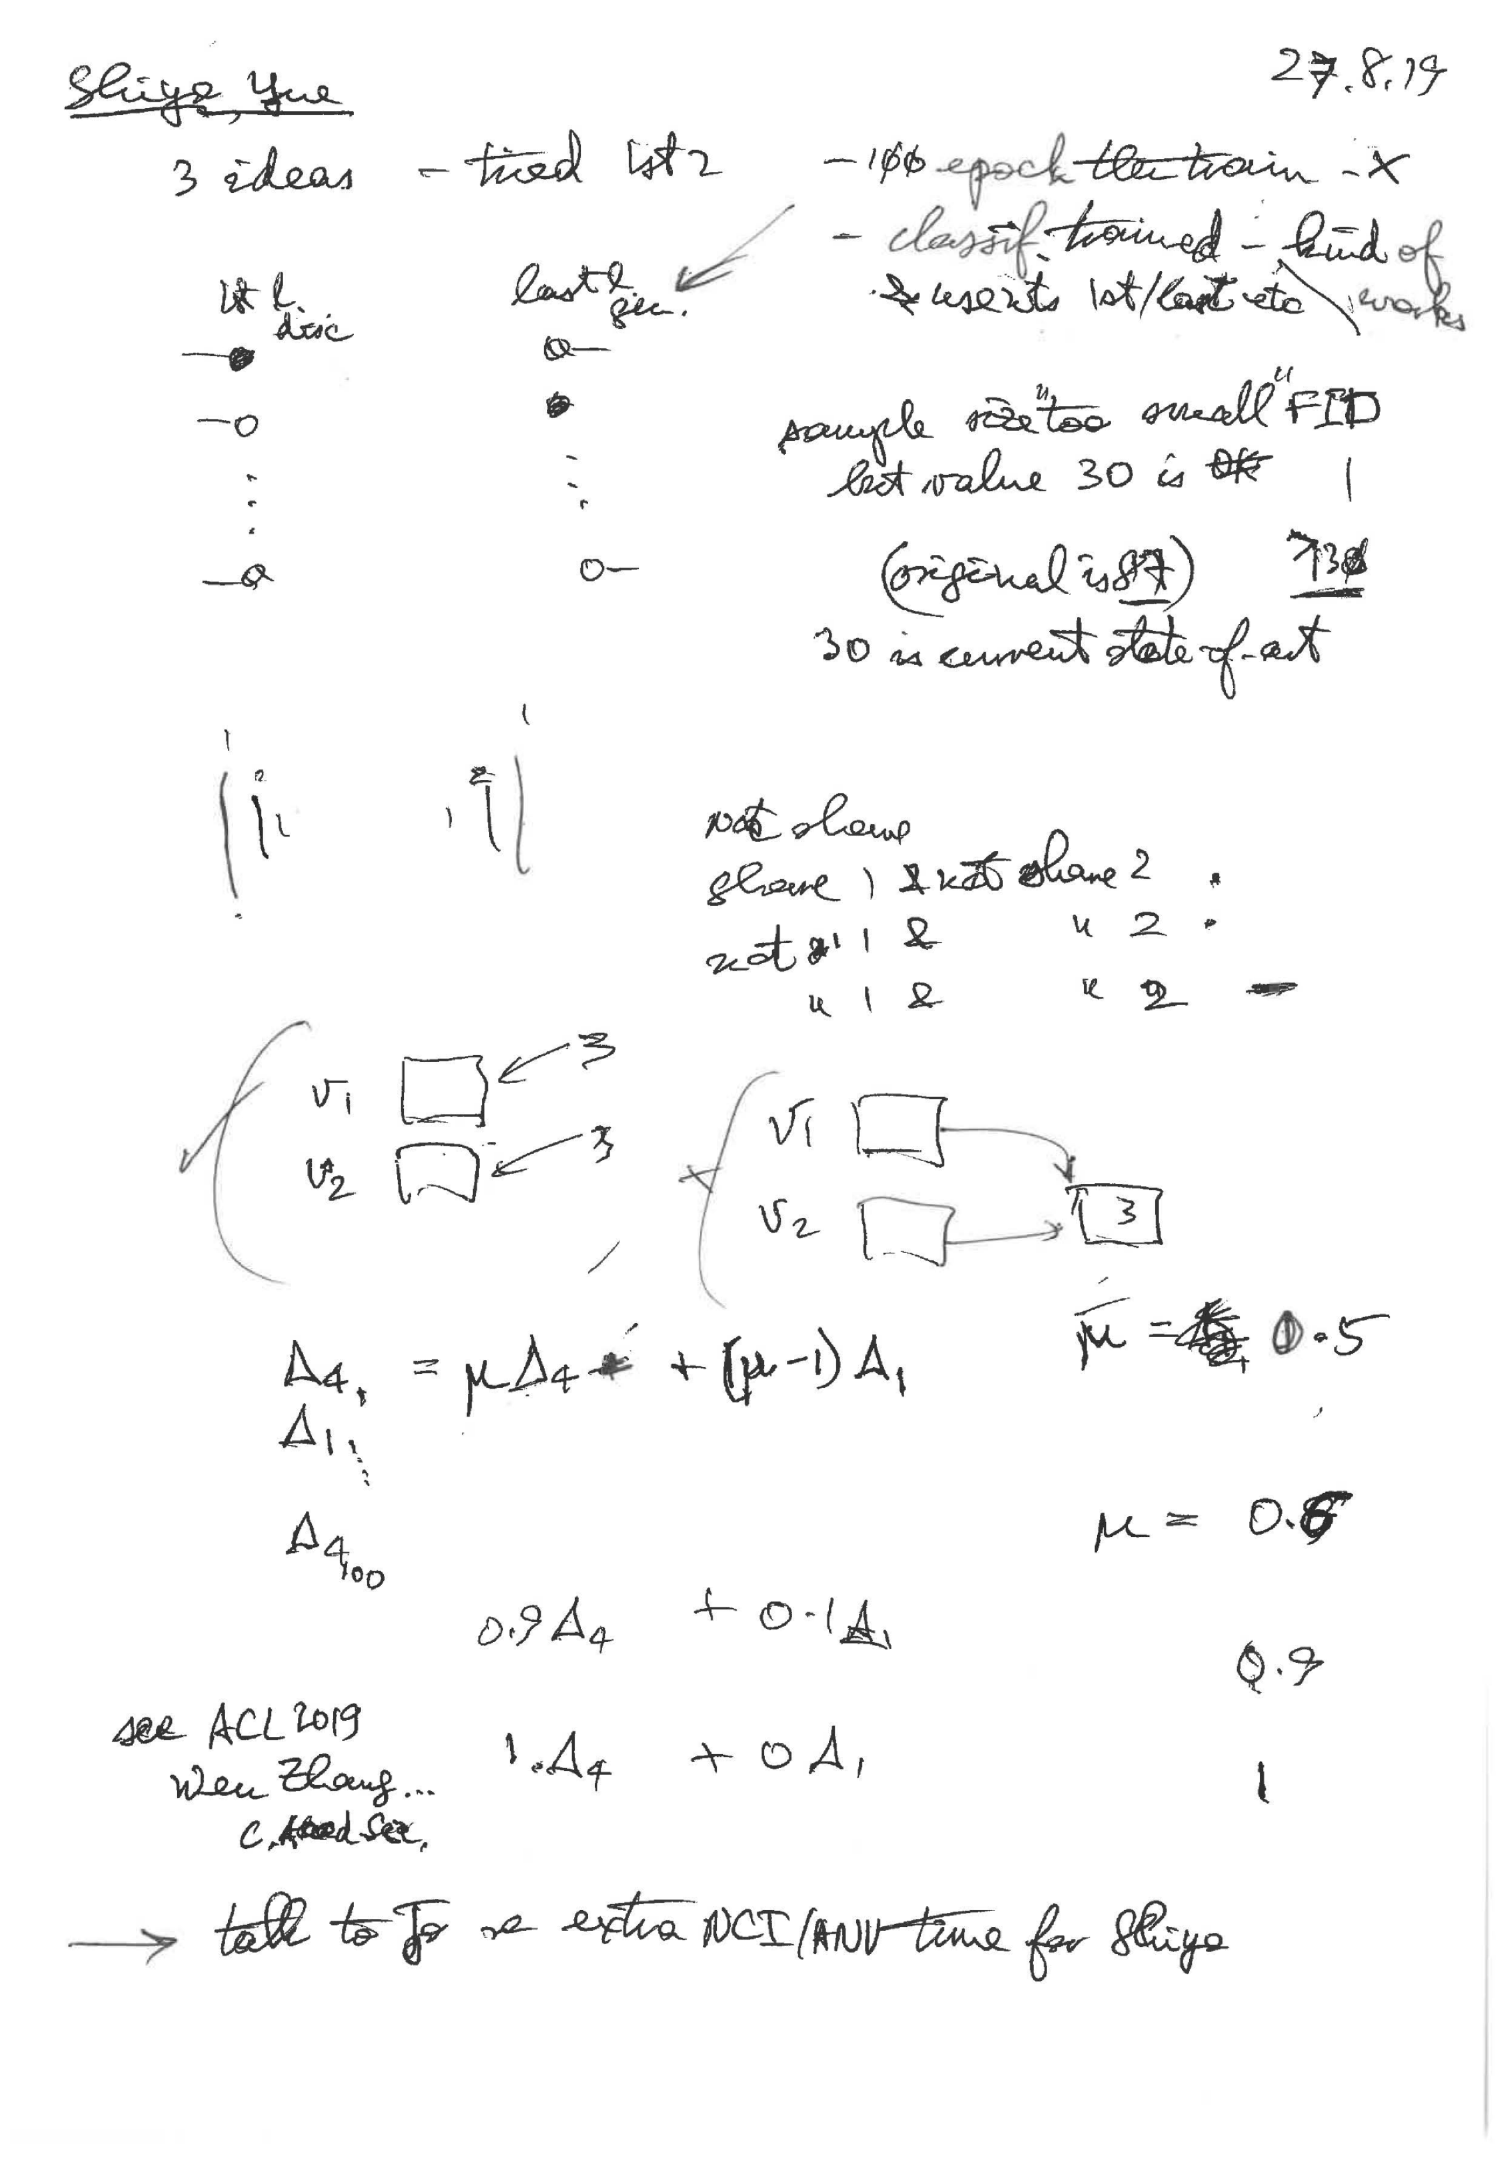 Shiya, Yue
27.8.19
3 ideas - tried 1st 2
- 100 epoch then train - X
- classif. trained - kind of works
& inserts 1st/last etc
1st l. disc
last l. gen.
sample size "too small" FID
but value 30 is OK 1
(original is 87) 30
30 is current state-of-art
1 2 1
1 2 1
not share
share 1 & not share 2 .
not " 1 & " 2 .
" 1 & " 2 -
V1 3
V2 3
V1
V2
3
Δ4, = μΔ4 + (μ-1) Δ1
μ = 0.5
Δ1,
μ = 0.8
Δ4,00
0.9Δ4 + 0.1Δ1
0.9
see ACL 2019
Wen Zhang...
1.Δ4 + 0Δ1
1
→ talk to Jo re extra NCI/ANU time for Shiya